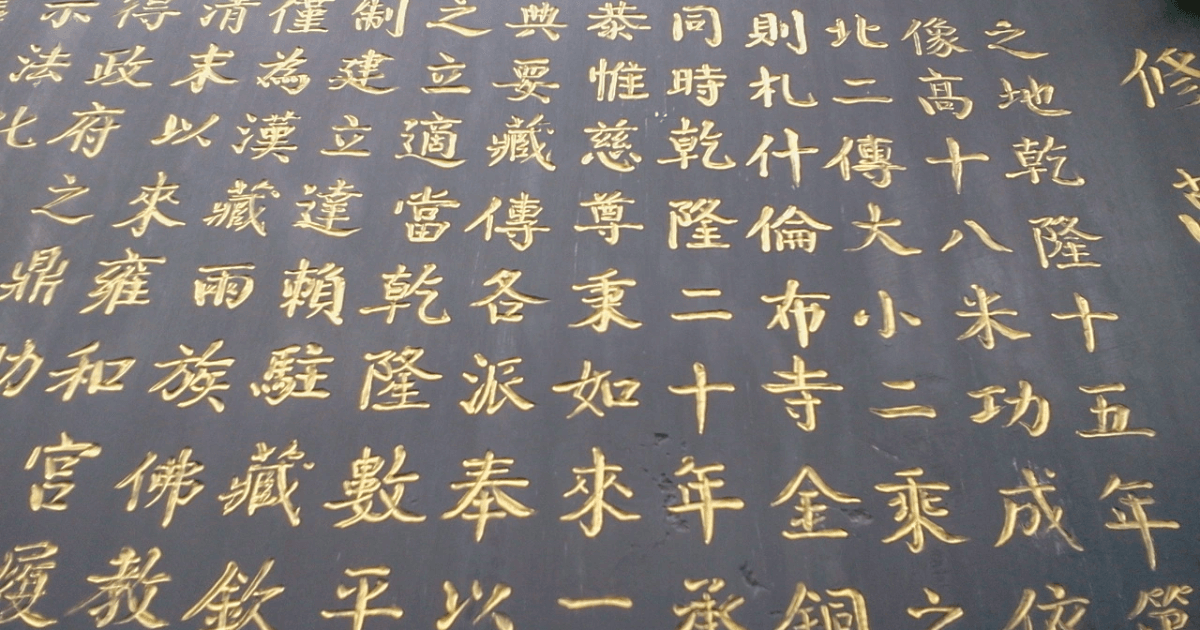 修
之地乾隆十五年第
像高十八米功成依
北二傳大小二乘之
則札什倫布寺金銅
同時乾隆二十年承
恭惟慈尊秉如來一
典要藏傳各派奉以
之立適當乾隆數平
制建立達賴駐藏欽
僅為漢藏雨族
清末以來雍和佛教
得政府之鼎宮
示法化